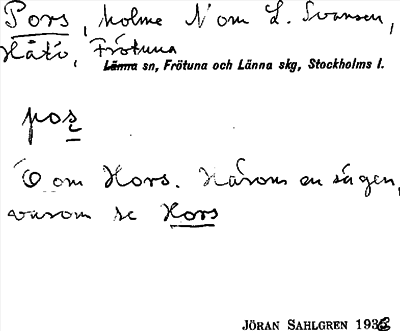 Pors, holme N om L. Svansen,
Håtö, Frötuna
Länna sn, Frötuna och Länna skg, Stockholms l.
pos̨
Ö om Hors. Härom en sägen,
varom se Hors
JÖRAN SAHLGREN 1936